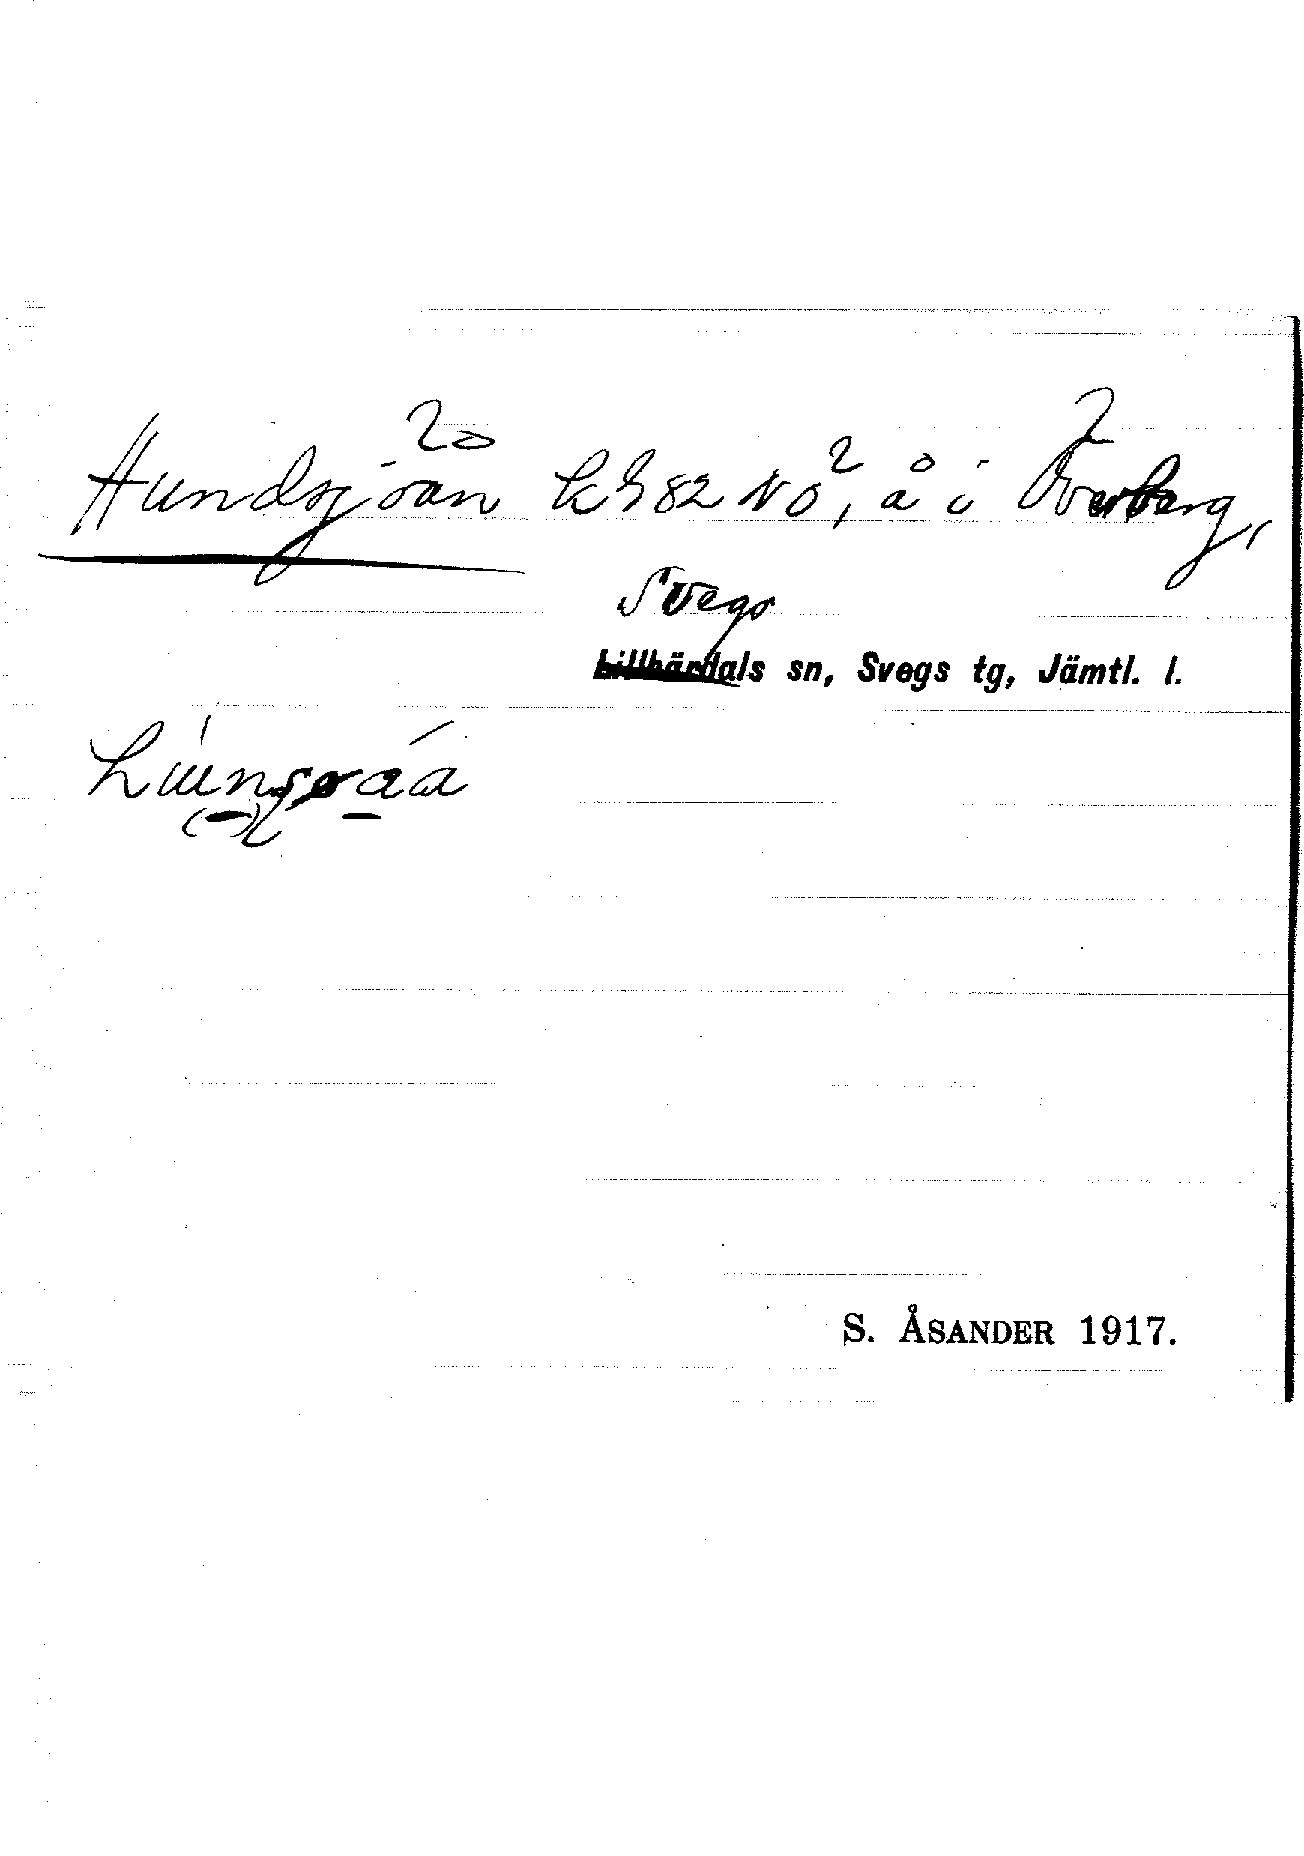 Hundsjöån kbl 82 NÖ, å i Överberg,
Svegs
Lillhärdals sn, Svegs tg, Jämtl. l.
S. ÅSANDER 1917.